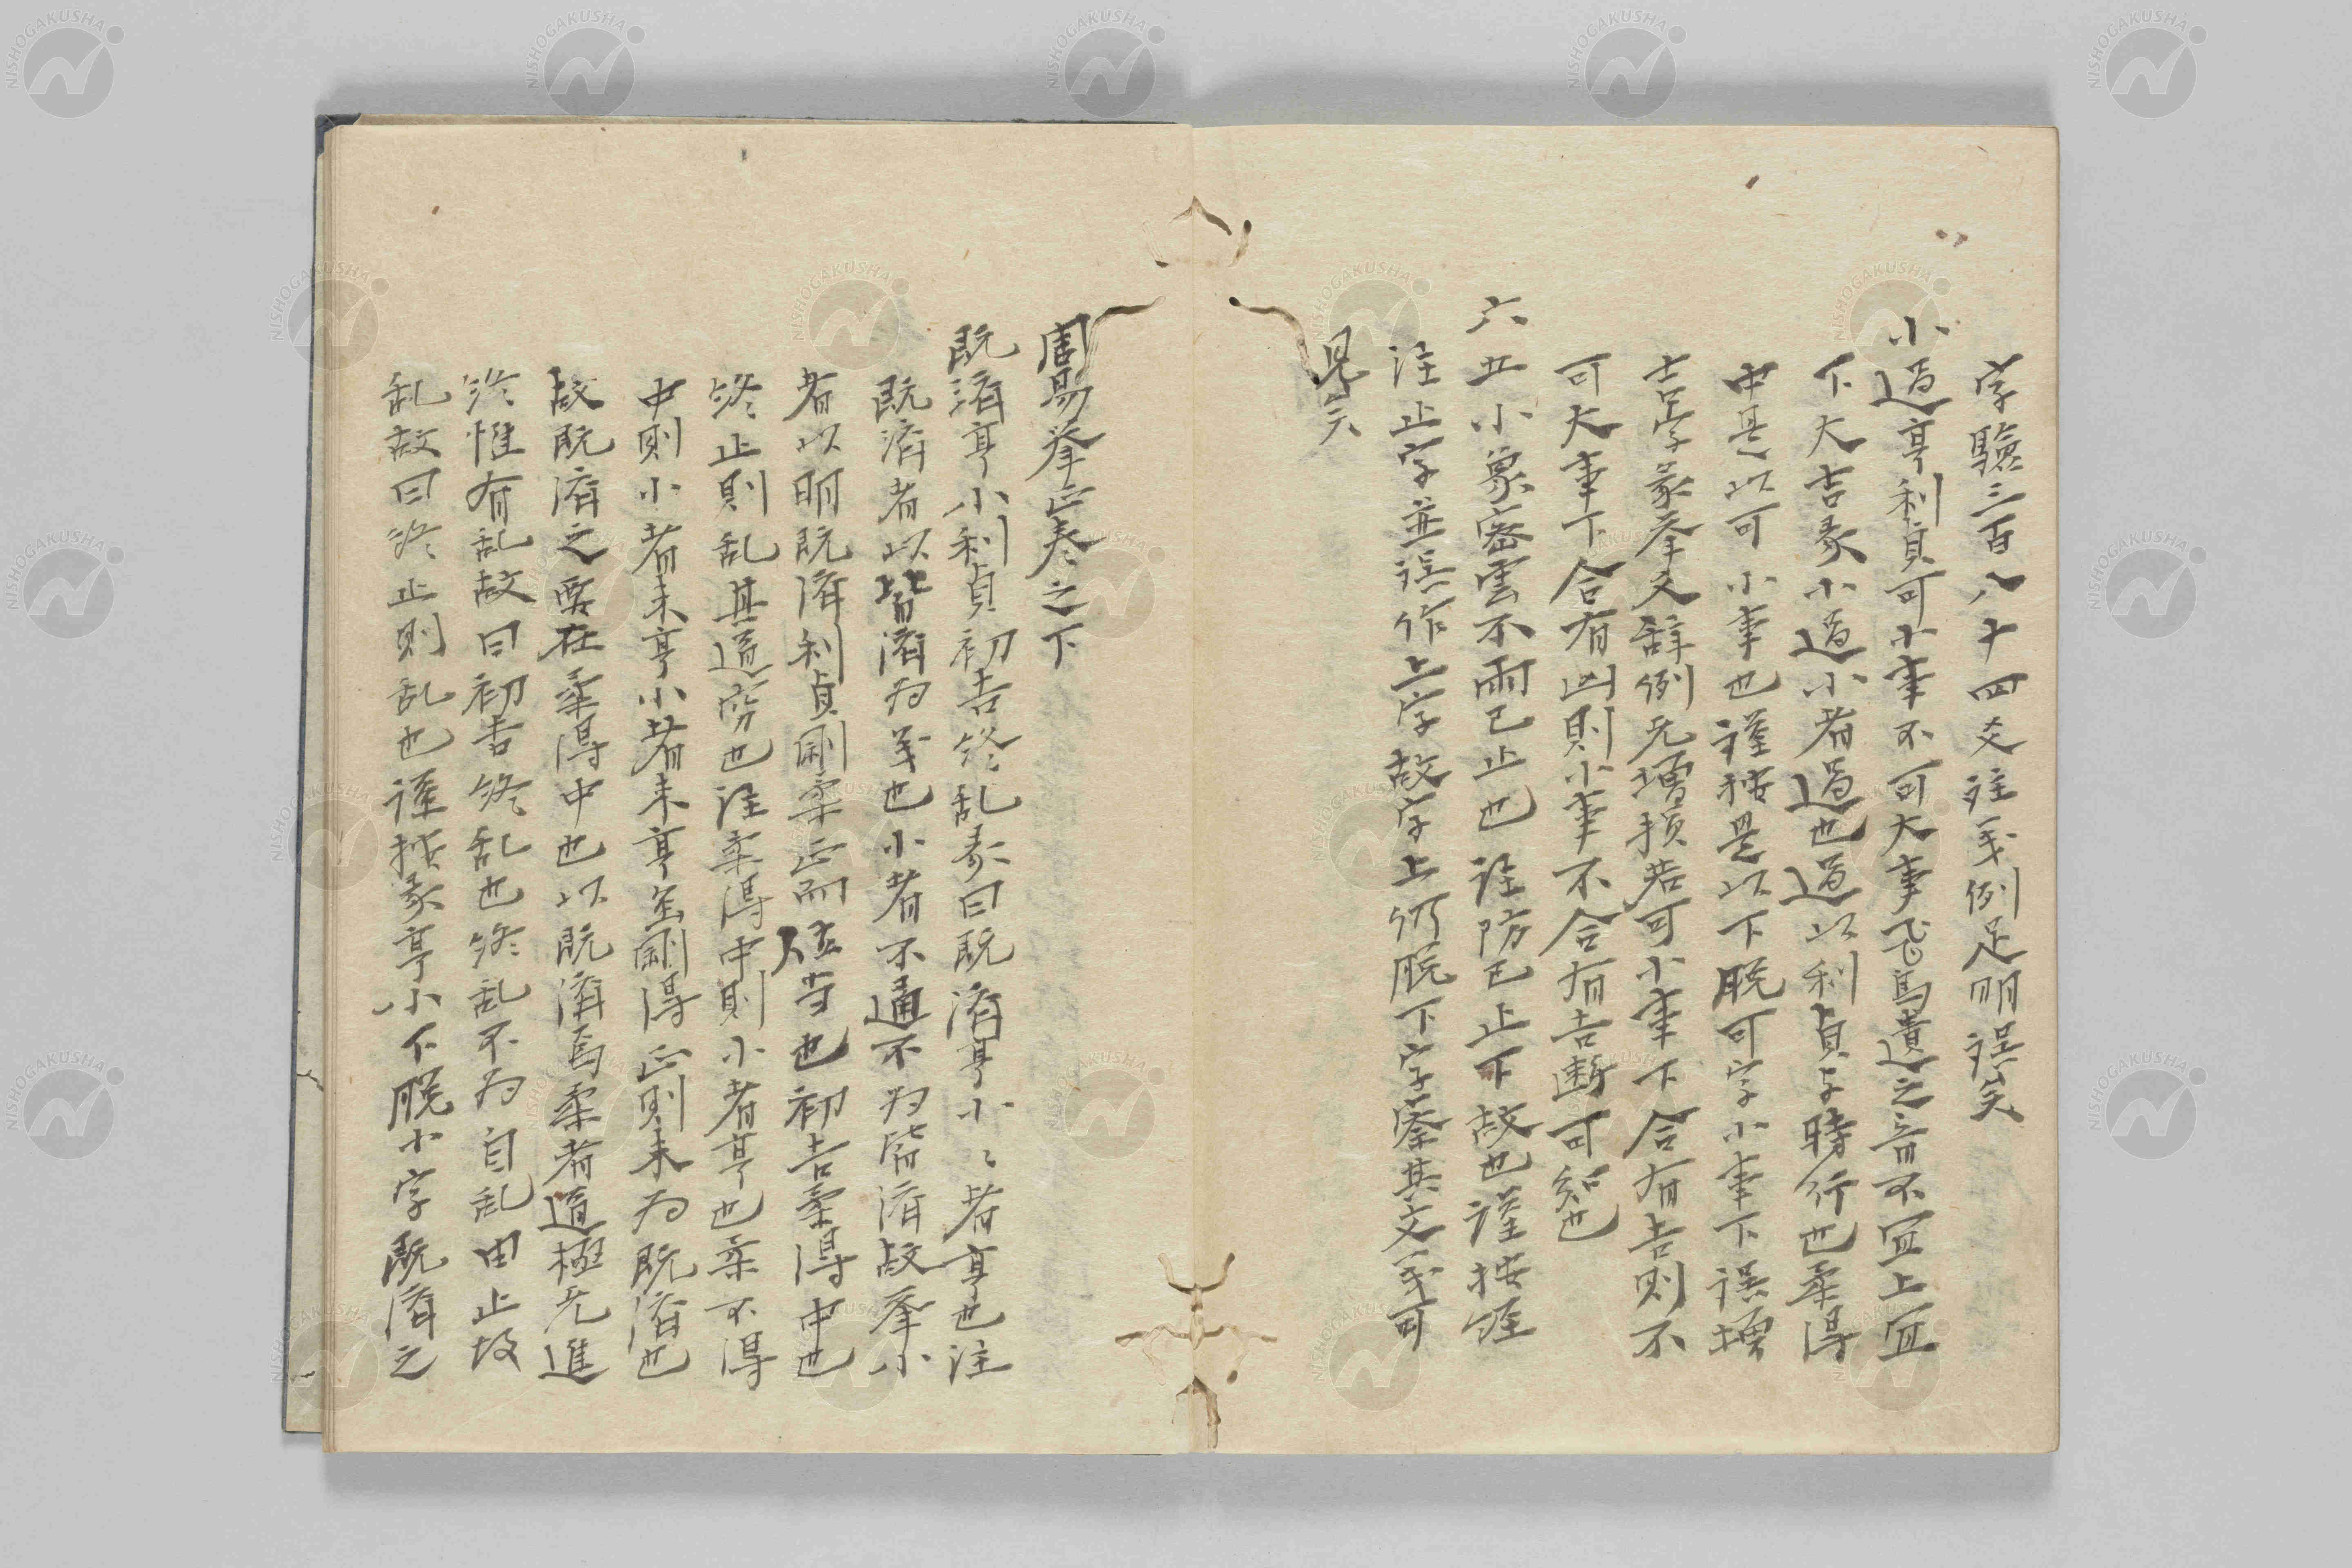 字驗三百八十四爻注義例足明誤矣
小過亨利貞可小事不可大事飛鳥遺之音不宜上宜
下大吉彖小過小者過也過以利貞与時行也柔得
中是以可小事也謹按是以下脱可字小事下誤増
吉字彖举爻辞例无増損若可小事下合有吉則不
可大事下合有凶則小事不合有吉断可知也
六五小象密雲不雨已止也注防已止下故也謹按經
注止字並誤作上字故字上仍脱下字審其文義可
見矣
周易举正卷之下
既濟亨小利貞初吉終乱彖曰既濟亨小〻者亨也注
既濟者以皆濟为義也小者不通不为皆濟故举小
者以明既濟利貞剛柔正而位当也初吉柔得中也
終止則乱其道窮也注柔得中則小者亨也柔不得
中則小者未亨小者未亨虽剛得正則未为既濟也
故既濟之要在柔得中也以既濟为柔者道極无進
終惟有乱故曰初吉終乱也終乱不为自乱由止故
乱故曰終止則乱也謹按彖亨小下脱小字既濟之
NISHOGAKUSHA